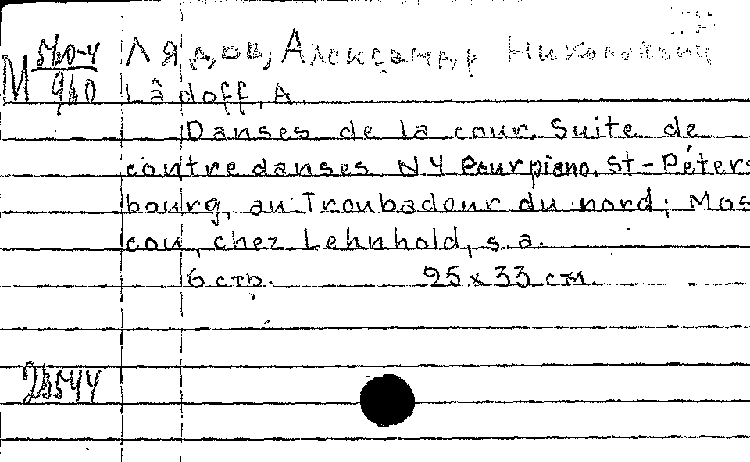 М 560-4 Лядов, Александр Николаевич
960 Lâdoff, A.
Danses de la cour. Suite de
contredanses N 4 pour piano. St-Péters-
bourg, au Troubadour du nord; Mos-
cou, chez Lehnhold, s.a.
6 стр. 25 x 33 см.
25544